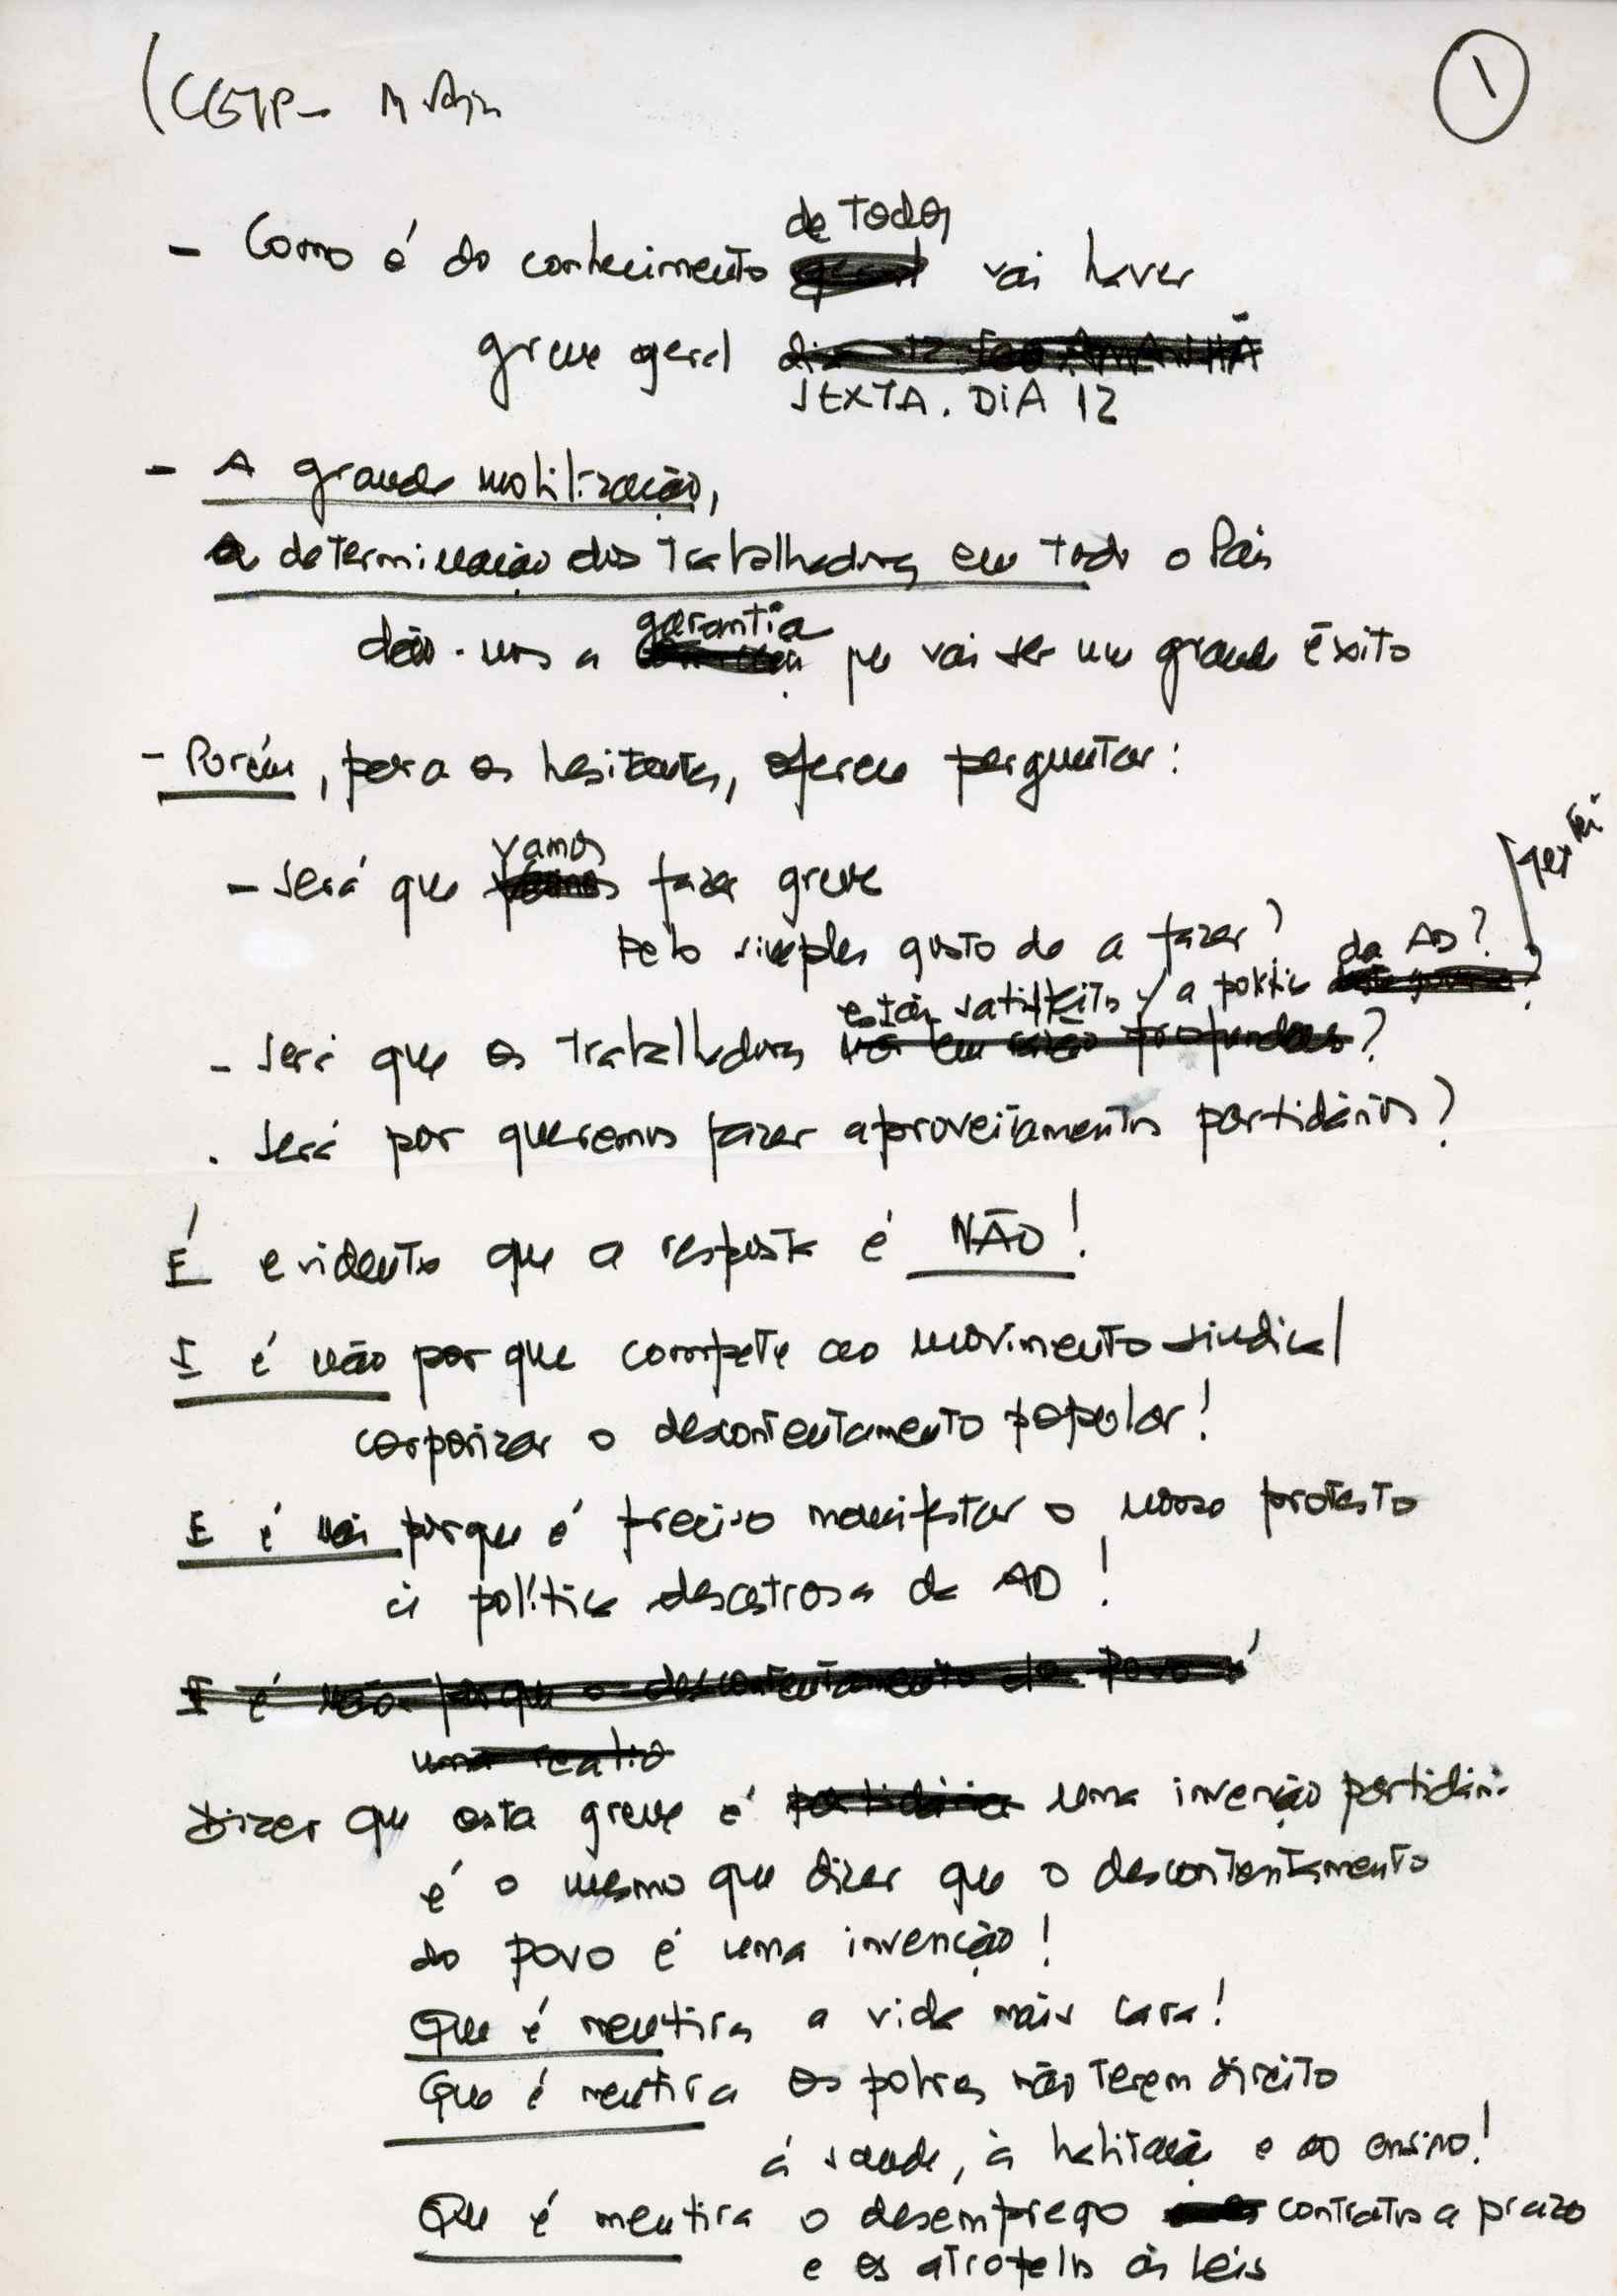 (CGTP-
1
de todos
- Como é do conhecimento geral vai haver
greve geral dia 12 AMANHÃ
SEXTA. DIA 12
- A grande mobilização,
a determinação dos trabalhadores em todo o País
garantia
dão-nos a que vai ser um grande êxito
- Porém, para os hesitantes, oferece perguntar:
vamos
- Será que fazer greve
pelo simples gosto de a fazer?
da AD?
estão satisfeitos c/ a política
- Será que os trabalhadores ?
. Será por queremos fazer aproveitamentos partidários?
É evidente que a resposta é NÃO!
E é não por que compete ao movimento sindical
corporizar o descontentamento popular!
E é não porque é preciso manifestar o nosso protesto
à política desastrosa da AD!
E é não porque o descontentamento do Povo é
uma realid
Dizer que esta greve é partidária uma invenção partidária
é o mesmo que dizer que o descontentamento
do povo é uma invenção!
Que é mentira a vida mais cara!
Que é mentira os pobres não terem direito
à saude, à habitação e ao ensino!
Que é mentira o desemprego contratos a prazo
e os atropelos às leis